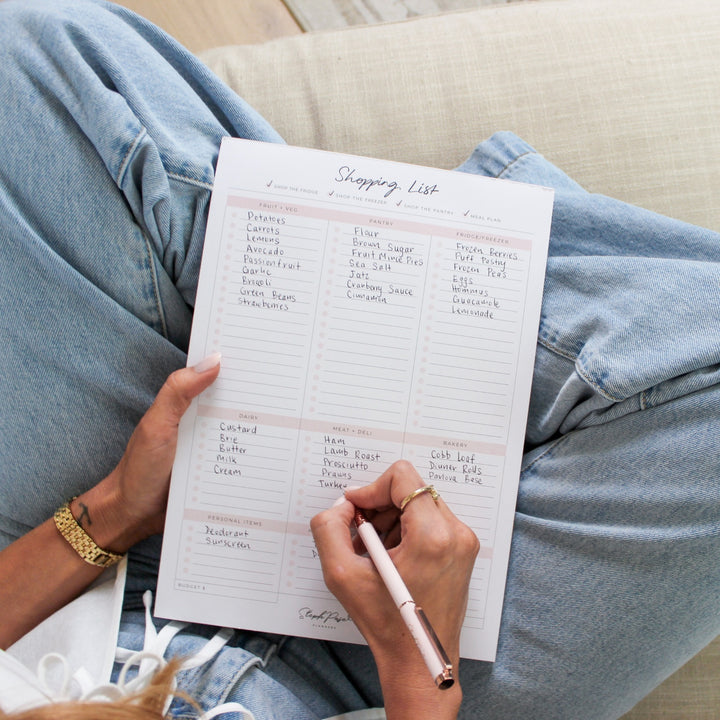 Shopping List
✓ SHOP THE FRIDGE ✓ SHOP THE FREEZER ✓ SHOP THE PANTRY ✓ MEAL PLAN
FRUIT + VEG
Potatoes
Carrots
Lemons
Avocado
Passionfruit
Garlic
Brocoli
Green Beans
Strawberries
PANTRY
Flour
Brown Sugar
Fruit Mime Pies
Sea Salt
Jatz
Cranberry Sauce
Cinnamon
FRIDGE/FREEZER
Frozen Berries
Puff Pastry
Frozen Peas
Eggs
Hommus
Guacamole
Lemonade
DAIRY
Custard
Brie
Butter
Milk
Cream
MEAT + DELI
Ham
Lamb Roast
Prosciutto
Prawns
Turkey
BAKERY
Cobb Loaf
Dinner Rolls
Pavlova Base
PERSONAL ITEMS
Deodorant
Sunscreen
BUDGET $
PLANNERS